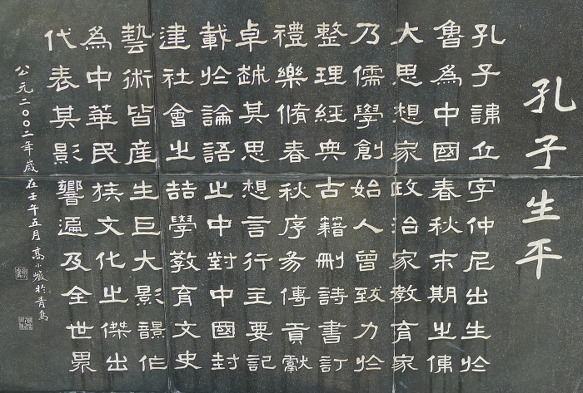 孔子生平
孔子諱丘字仲尼出生於
魯為中國春秋末期之偉
大思想家政治家教育家
乃儒學創始人曾致力於
整理經典古籍刪詩書訂
禮樂脩春秋序易傳貢獻
卓越其思想言行主要記
載於論語之中對中國封
建社會之喆學教育文史
藝術皆産生巨大影作
為中華民族文化之傑出
代表其影響遍及全世界
公元二〇〇二年歲在壬午五月 高小巖於青島